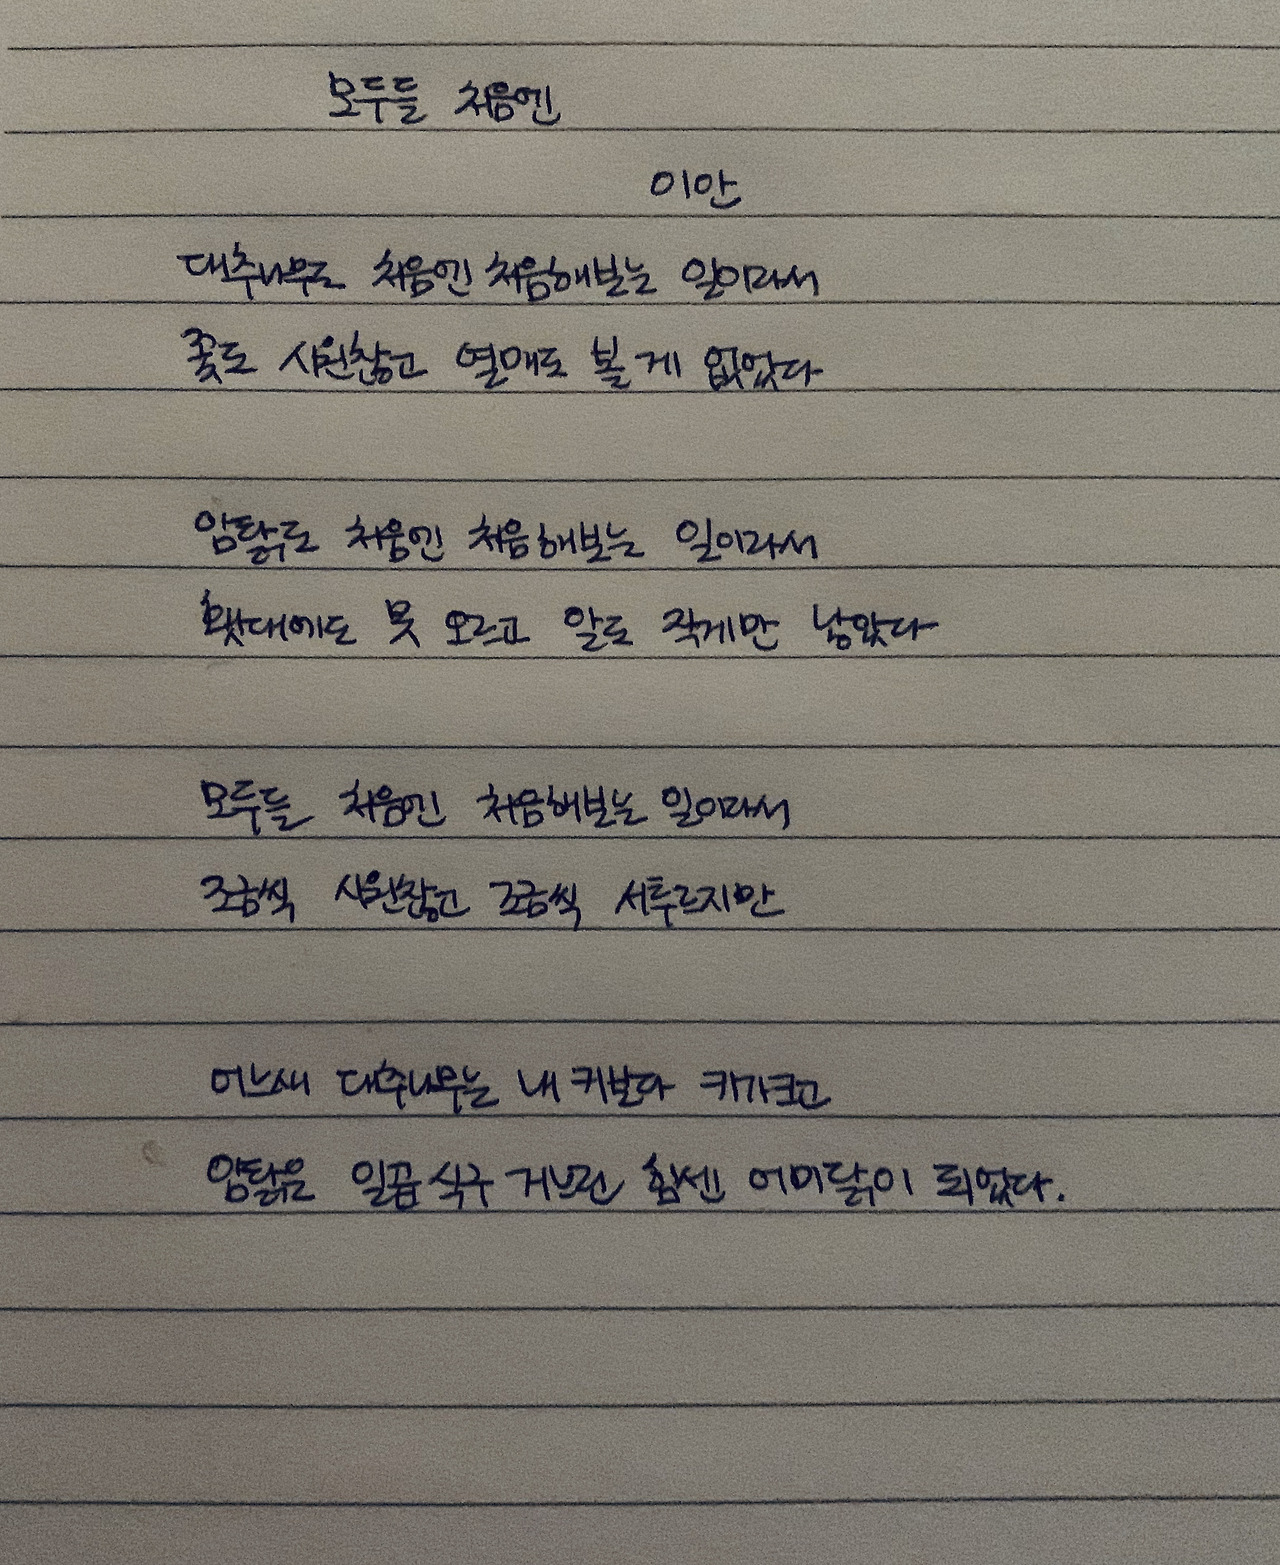 모두들 처음엔
이안
대추나무도 처음엔 처음해보는 일이라서
꽃도 시원찮고 열매도 볼 게 없었다
암탉도 처음엔 처음해보는 일이라서
횃대에도 못 오르고 알도 작게만 낳았다
모두들 처음엔 처음해보는 일이라서
조금씩 시원찮고 조금씩 서투르지만
어느새 대추나무는 내 키보다 키가 크고
암탉은 일곱 식구 거느린 힘센 어미닭이 되었다.